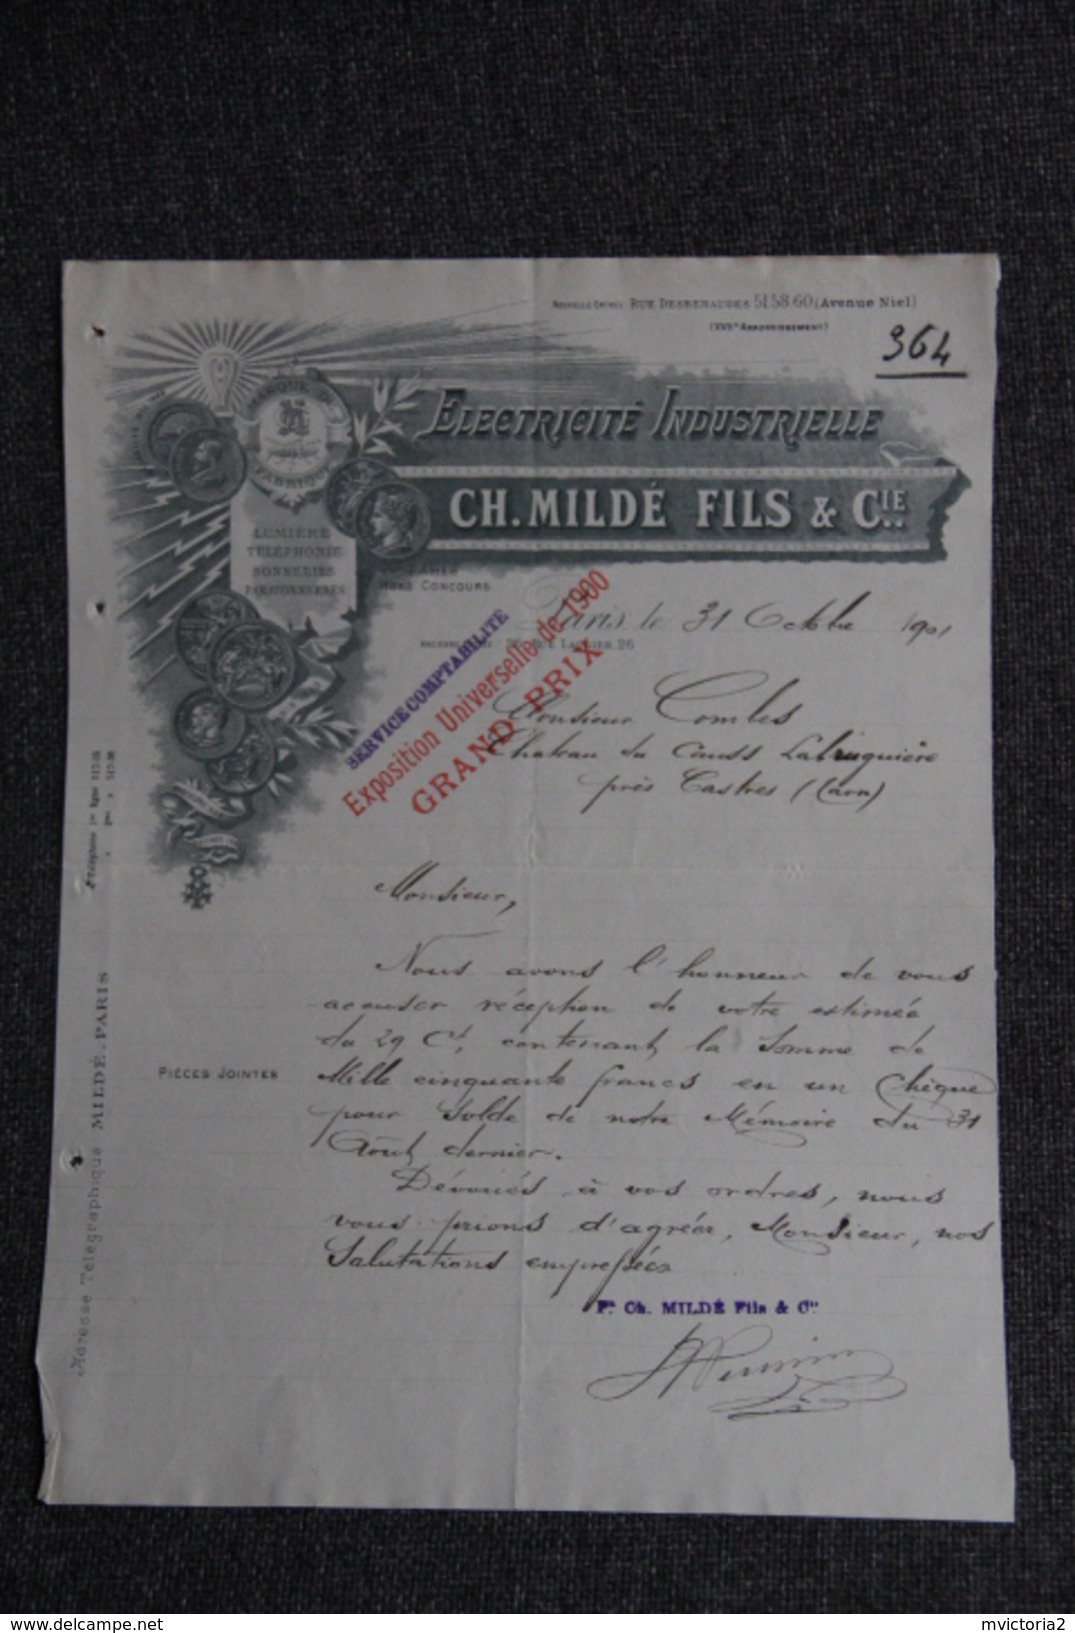 Nouvelle Entrée: Rue Desrenaudes 51.58.60 (Avenue Niel)
(XVIIe Arrondissement)
364
Electricité Industrielle
CH. MILDÉ FILS & CIE.
MARQUE DE
FABRIQUE
LUMIÈRE
TELEPHONIE
SONNERIES
PARATONNERRES
PARIS
Hors Concours
Paris, le 31 Octobre 1901
26 Rue Laugier, 26
SERVICE COMPTABILITÉ
Exposition Universelle de 1900
GRAND PRIX
Monsieur Combes
Chateau du Causs Labruguière
près Castres (Tarn)
Monsieur,
Nous avons l'honneur de vous
accuser réception de votre estimée
du 29 Ct, contenant la Somme de
Mille cinquante francs en un Chèque
pour Solde de notre Mémoire du 31
Août dernier.
Dévoués à vos ordres, nous
vous prions d'agréer, Monsieur, nos
Salutations empressées
PIÈCES JOINTES
Adresse Télégraphique MILDÉ-PARIS
Pr. Ch. MILDÉ Fils & Cie
delcampe.net
mvictoria2